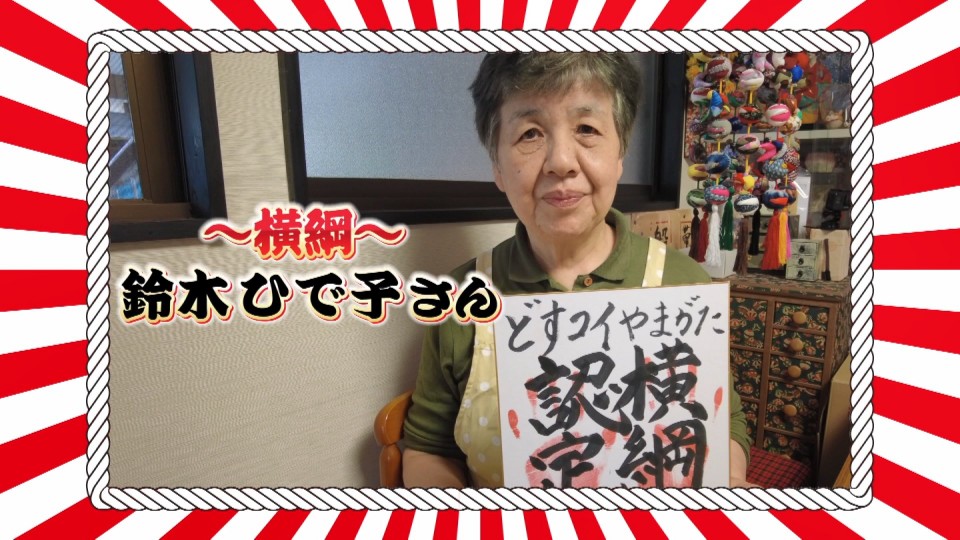 ～横綱～
鈴木ひで子さん
どすコイやまがた
横綱
認定